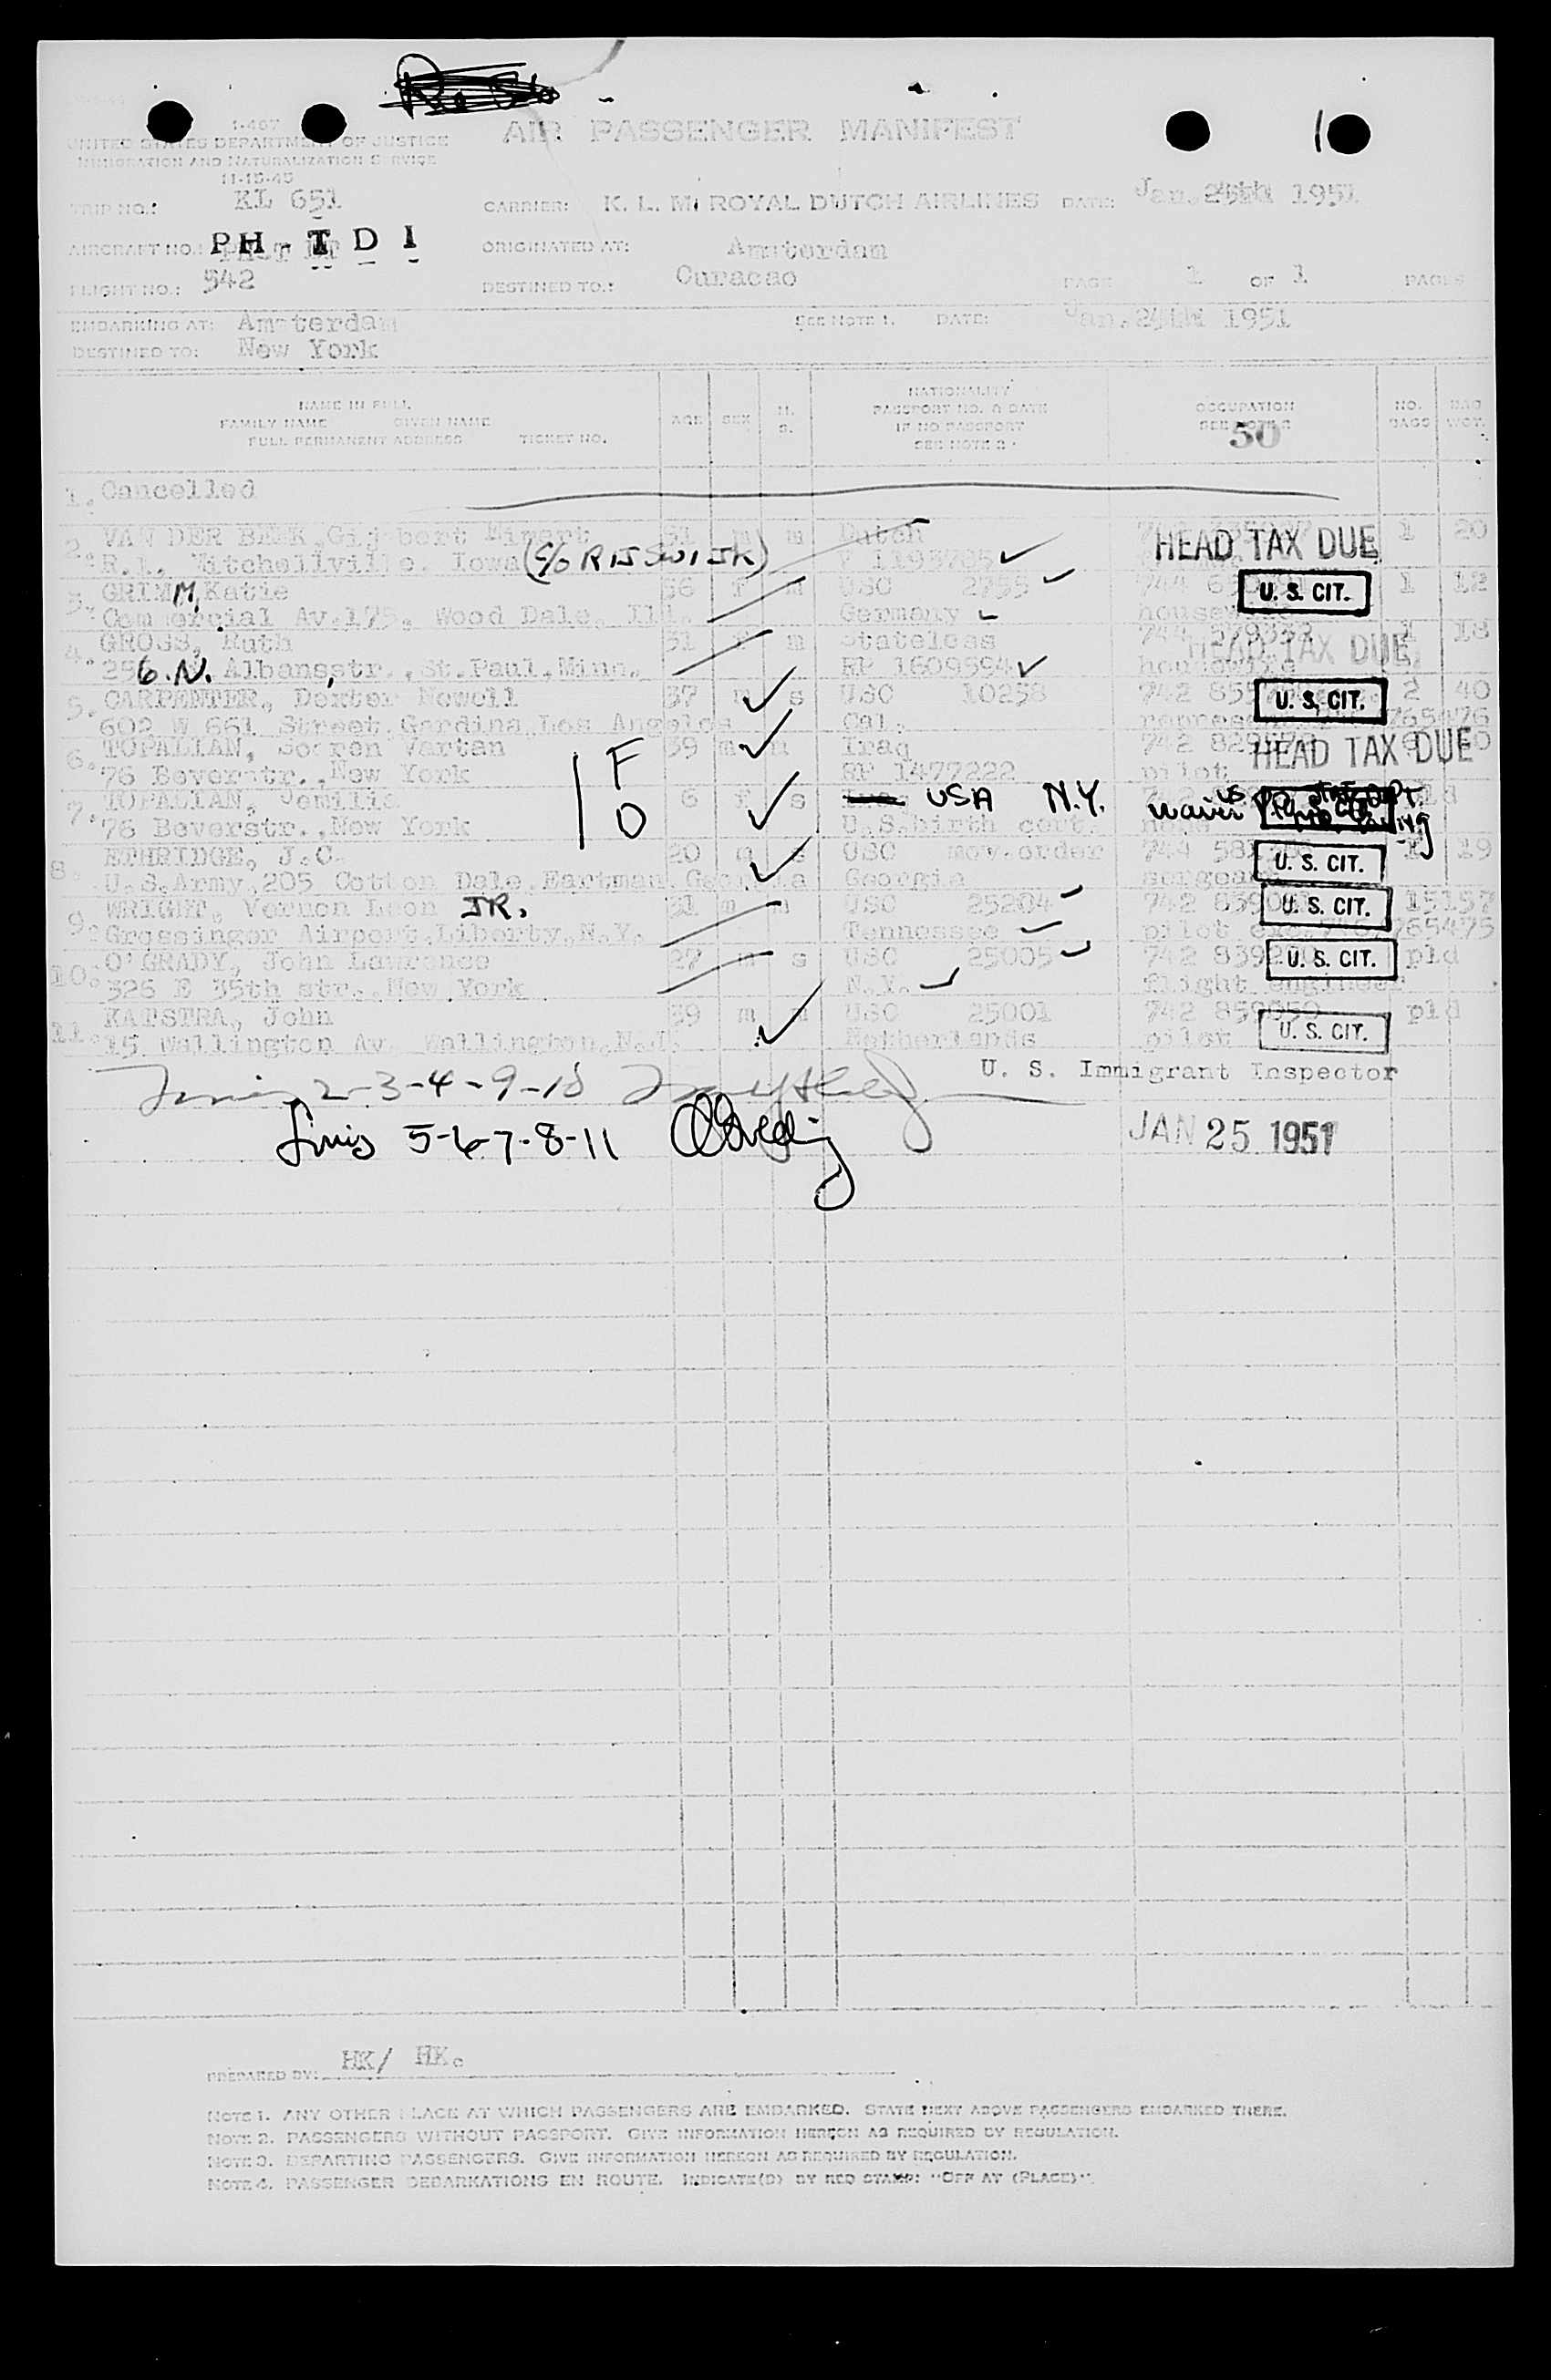 1-467
UNITED STATES DEPARTMENT OF JUSTICE
IMMIGRATION AND NATURALIZATION SERVICE
11-15-45
AIR PASSENGER MANIFEST
1
TRIP NO.: KL 651 CARRIER: K. L. M. ROYAL DUTCH AIRLINES DATE: Jan. 24th 1951
AIRCRAFT NO.: PH-TDI ORIGINATED AT: Amsterdam
FLIGHT NO.: 542 DESTINED TO.: Curacao PAGE 1 OF 1 PAGES
EMBARKING AT: Amsterdam SEE NOTE 1. DATE: Jan. 24th 1951
DESTINED TO: New York
NAME IN FULL
FAMILY NAME GIVEN NAME
FULL PERMANENT ADDRESS TICKET NO.
AGE SEX M. S.
NATIONALITY
PASSPORT NO. & DATE
IF NO PASSPORT
SEE NOTE 2
OCCUPATION
SEE NOTE
50
NO. BAGS
BAG WGT.
1. Cancelled
2. VAN DER BEEK, 31 m m Dutch HEAD TAX DUE 1 20
R.1. Mitchellville. Iowa (c/o RIJSWIJK)
3. GRIMM, Katie 36 f m USC 2755 744 U. S. CIT. 1 12
Commercial Av. 175, Wood Dale, Ill. Germany housewife
4. GROSS, Ruth 31 f m Stateless 744 HEAD TAX DUE 1 18
256.N. Albansstr., St.Paul, Minn. RP 1609594 housewife
5. CARPENTER, Dexter Newell 37 m s USC 10258 742 U. S. CIT. 2 40
602 W 661 Street, Gardina, Los Angeles Cal. 765476
6. TOPALIAN, Vartan 39 m m Iraq 742 HEAD TAX DUE
76 Beverstr., New York RP 1477222 pilot
F
O
7. TOPALIAN, 6 f s USA N.Y. waiver
76 Beverstr., New York U.S. birth cert. none
8. ETHRIDGE, J.C. 20 m s USC mov.order 744 U. S. CIT. 1 19
U.S. Army, 205 Cotton Dale, Eartman, Georgia Georgia
9. WRIGHT, Vernon Leon JR. 31 m m USC 25204 742 U. S. CIT.
Grossinger Airport, Liberty, N.Y. Tennessee pilot 765475
10. O'GRADY, John Lawrence 27 m s USC 25005 742 U. S. CIT. pld
326 E 35th str., New York N.Y. flight engineer
11. KATSTRA, John 39 m m USC 25001 742 859050 pld
15 Wallington Av. Wallington, N.J. Netherlands pilot U. S. CIT.
U. S. Immigrant Inspector
2-3-4-9-10
5-6-7-8-11
JAN 25 1951
PREPARED BY: HK/ HK.
NOTE 1. ANY OTHER PLACE AT WHICH PASSENGERS ARE EMBARKED. STATE NEXT ABOVE PASSENGERS EMBARKED THERE.
NOTE 2. PASSENGERS WITHOUT PASSPORT. GIVE INFORMATION HEREON AS REQUIRED BY REGULATION.
NOTE 3. DEPARTING PASSENGERS. GIVE INFORMATION HEREON AS REQUIRED BY REGULATION.
NOTE 4. PASSENGER DEBARKATIONS EN ROUTE. INDICATE(D) BY RED STAMP: "OFF AT (PLACE)".